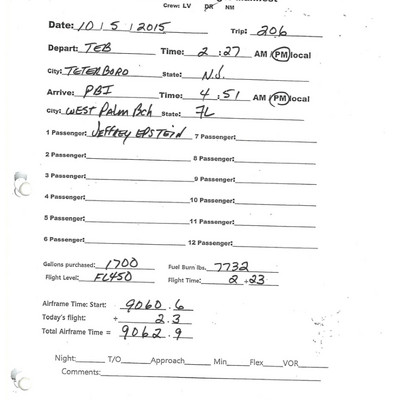 Crew: LV DR NM
Date: 10 | 5 | 2015 Trip: 206
Depart: TEB Time: 2 : 27 AM / PM local
City: TETERBORO State: N.J.
Arrive: PBI Time: 4 : 51 AM / PM local
City: WEST Palm Bch State: FL
1 Passenger: JEFFREY EPSTEIN 7 Passenger:
2 Passenger: 8 Passenger:
3 Passenger: 9 Passenger:
4 Passenger: 10 Passenger:
5 Passenger: 11 Passenger:
6 Passenger: 12 Passenger:
Gallons purchased: 1700 Fuel Burn lbs. 7732
Flight Level: FL450 Flight Time: 2 + 23
Airframe Time: Start: 9060.6
Today's flight: + 2.3
Total Airframe Time = 9062.9
Night: T/O Approach Min Flex VOR
Comments: